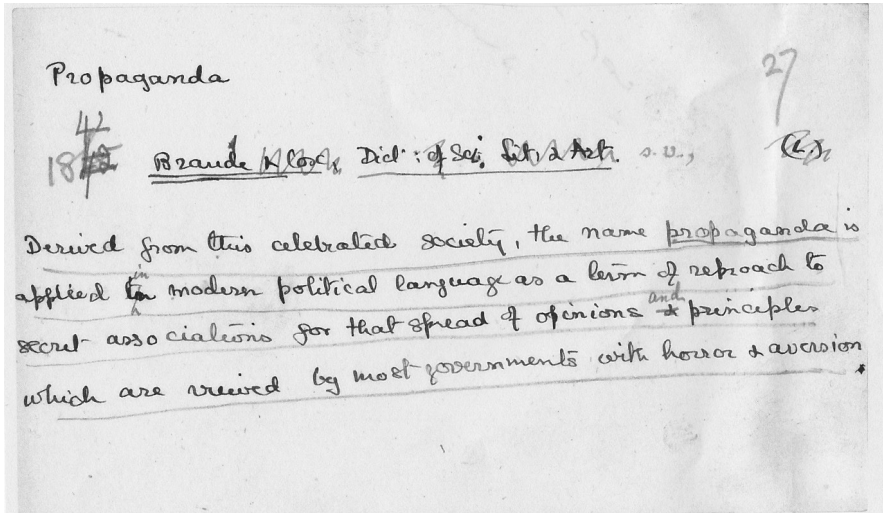 Propaganda
27
42
18
Brande & Cox, Dict: of Sci. Lit. & Art. s.v., (L.)
Derived from this celebrated society, the name propaganda is
applied in modern political language as a term of reproach to
secret associations for that spread of opinions and principles
which are viewed by most governments with horror & aversion.